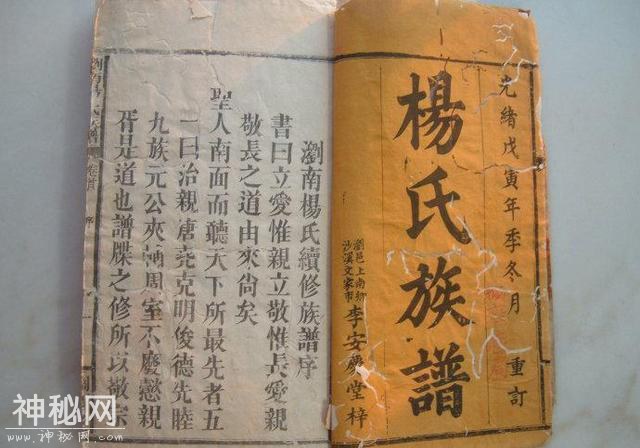 光緒戊寅年季冬月 重訂
楊氏族譜
瀏邑上南鄉
沙溪文家市
李安慶堂梓
瀏南楊氏續修族譜序
書曰立愛惟親立敬惟長愛親
敬長之道由來尙矣
聖人南面而聽天下所最先者五
一曰治親唐堯克明俊德先睦
九族元公夾輔周室不廢懿親
胥是道也譜牒之修所以敬宗
卷首 序
神秘网
www.神秘网.com